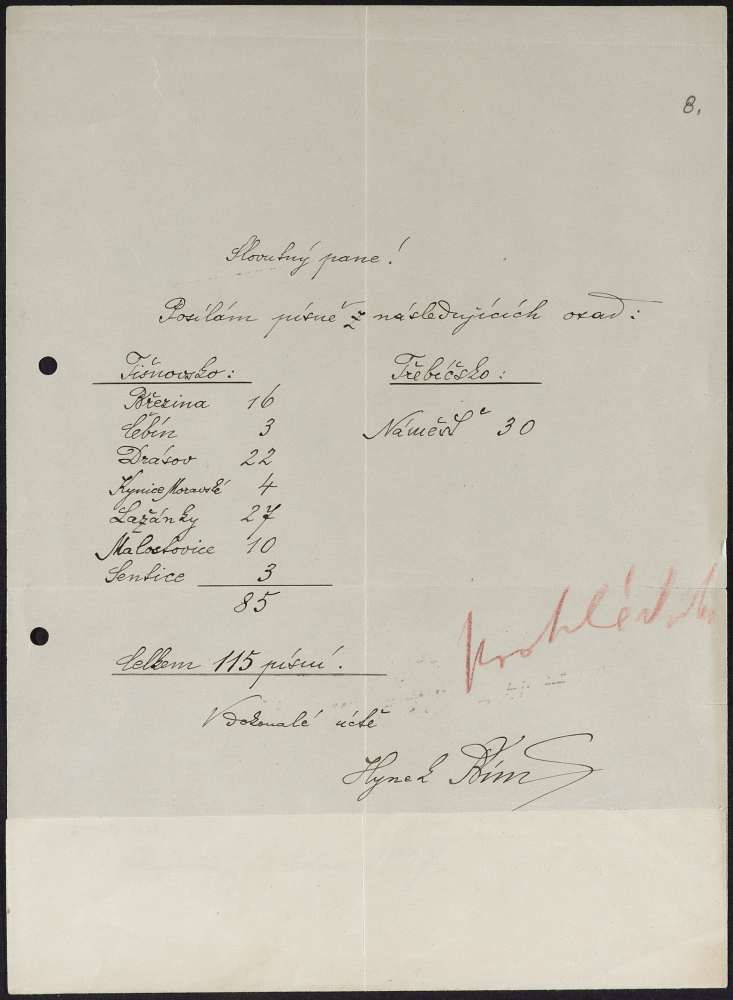 8.
Slovutný pane!
Posílám písně z následujících osad:
Tišnovsko:
Březina 16
Čebín 3
Drásov 22
Kynice Moravské 4
Lažánky 27
Malostovice 10
Sentice 3
85
Třebíčsko:
Náměšť 30
Celkem 115 písní.
V dokonalé úctě
Hynek Bím